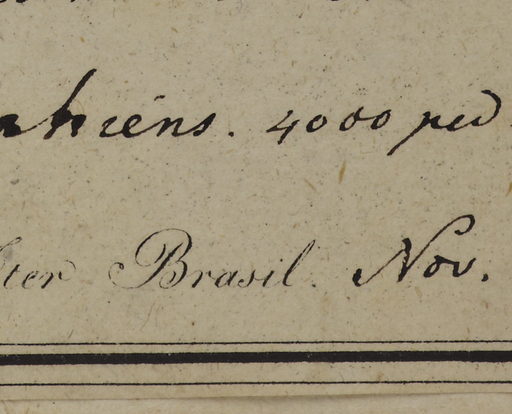 hiens. 4000 ped
ter Brasil. Nov.